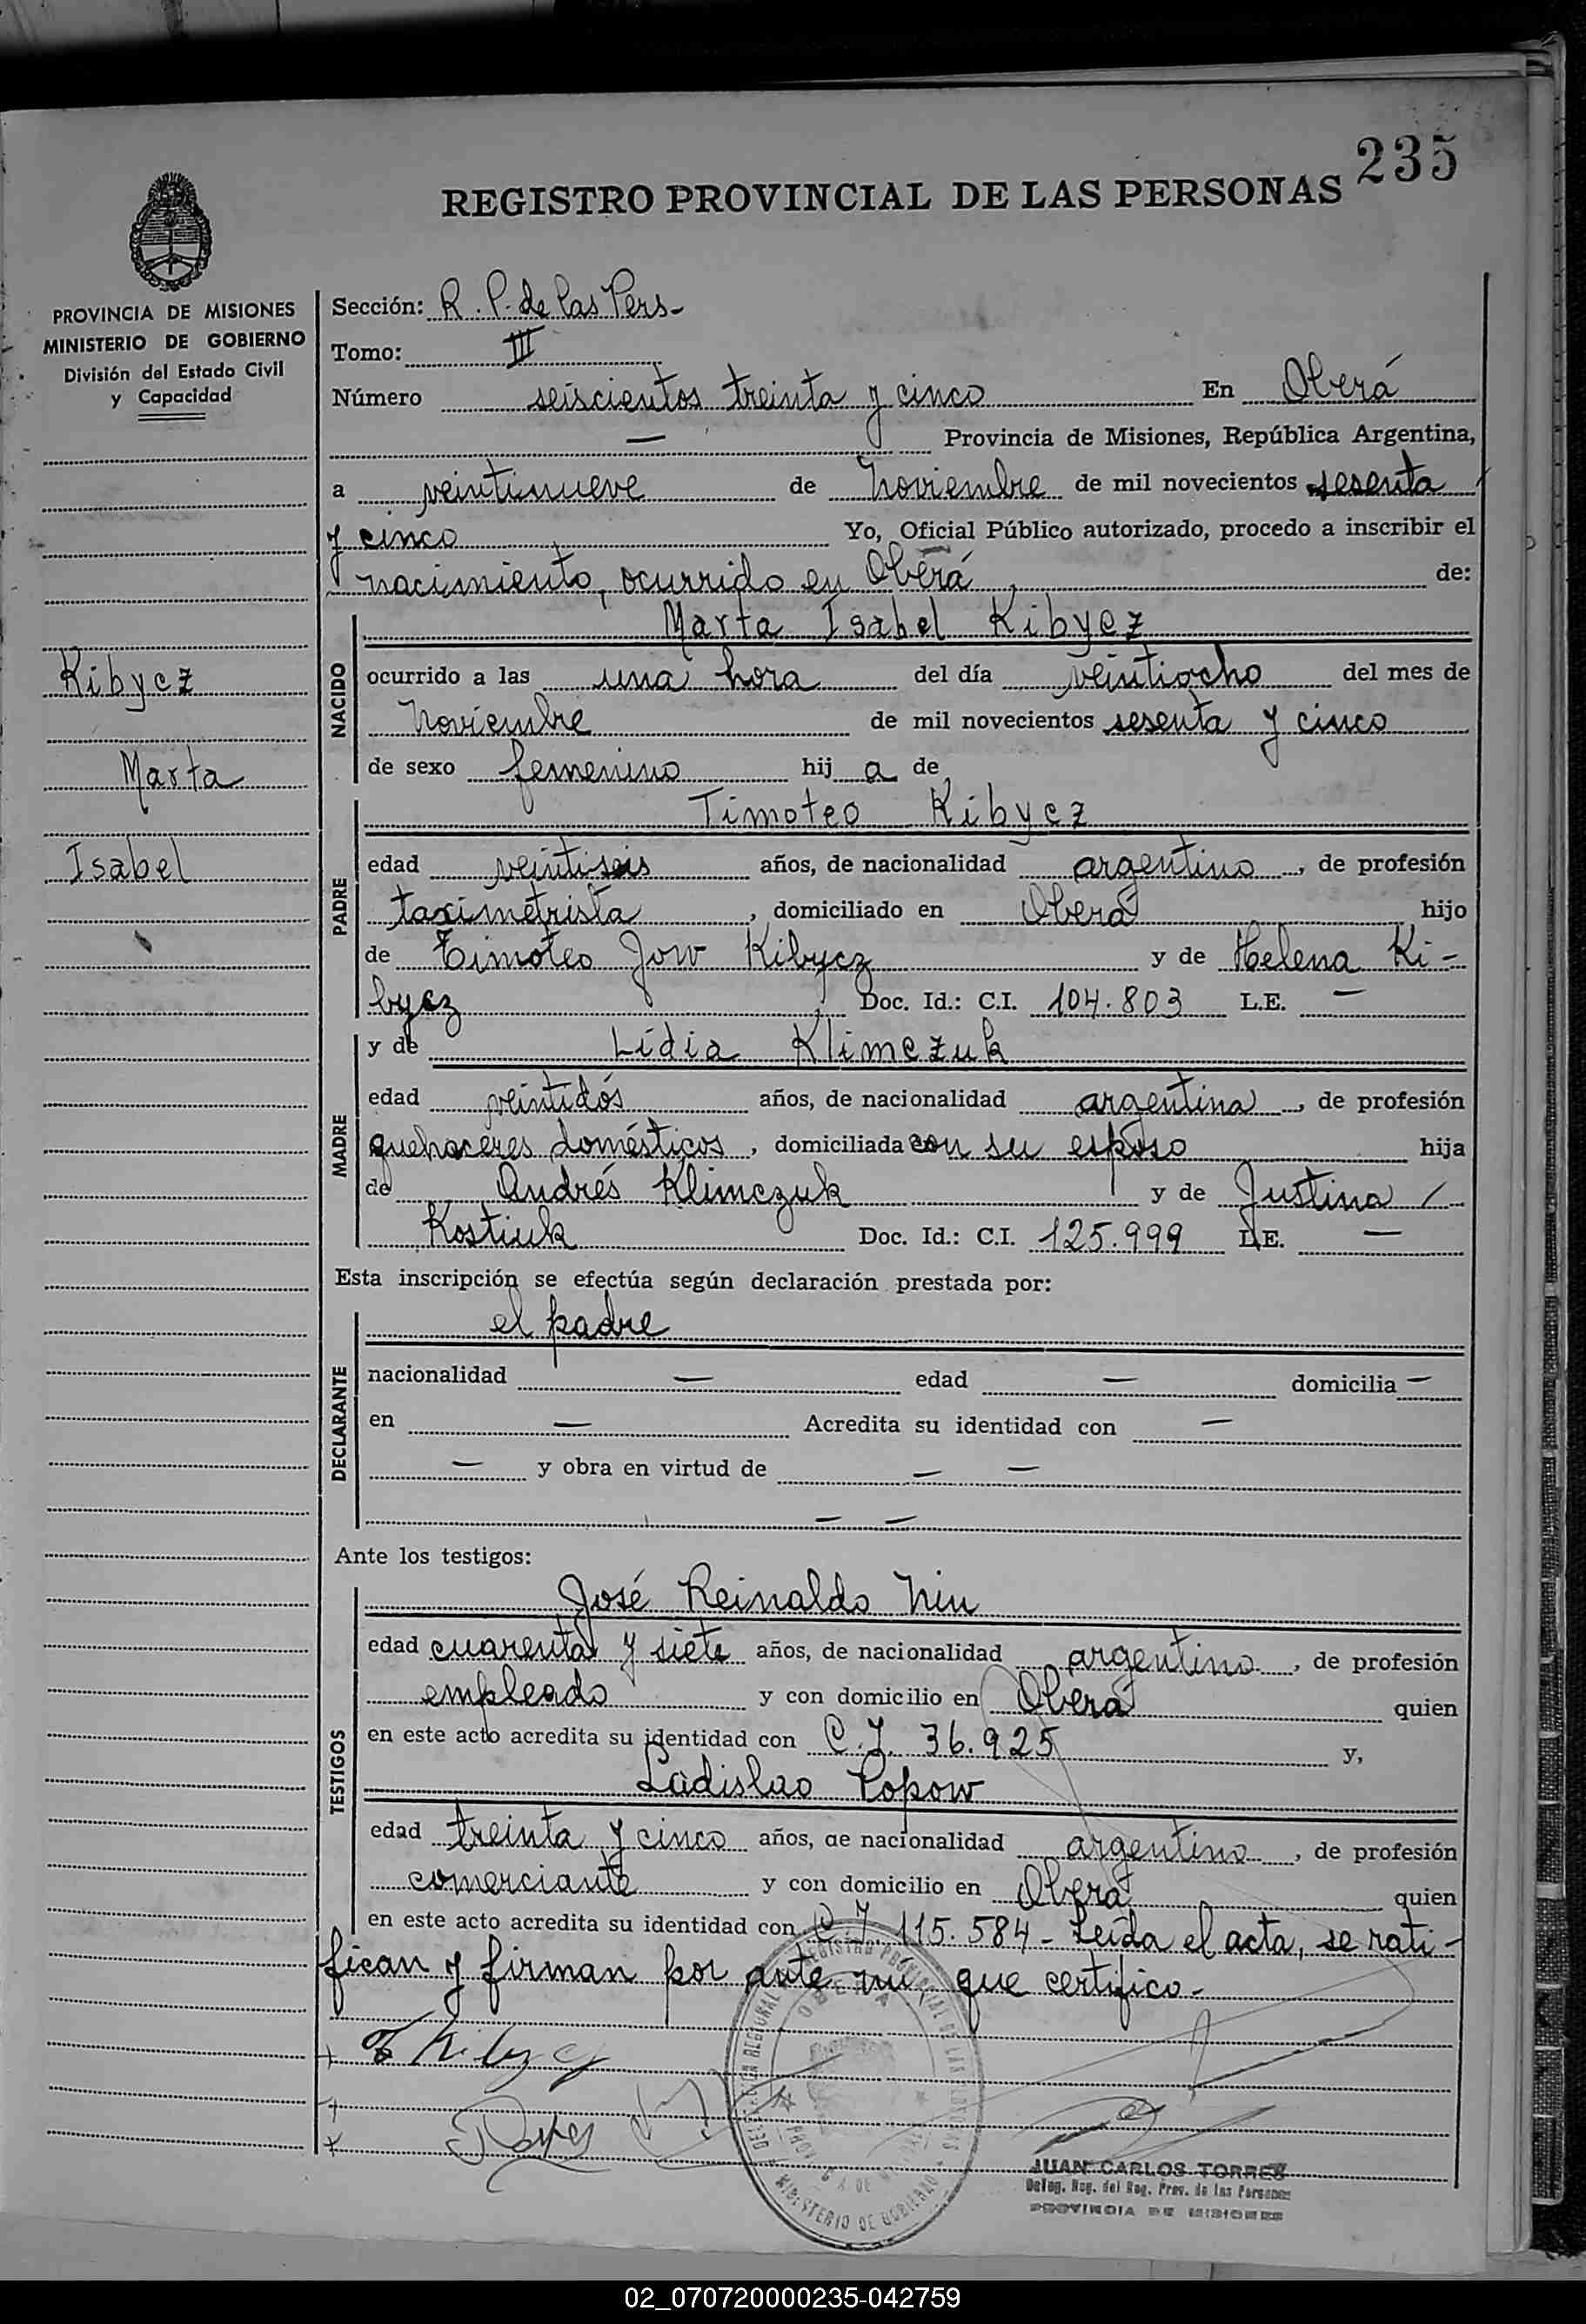 235
REGISTRO PROVINCIAL DE LAS PERSONAS
PROVINCIA DE MISIONES
MINISTERIO DE GOBIERNO
División del Estado Civil
y Capacidad
Kibycz
Marta
Isabel
Sección: R. P. de las Pers-
Tomo: III
Número seiscientos treinta y cinco En Oberá
— Provincia de Misiones, República Argentina,
a veintinueve de Noviembre de mil novecientos sesenta
y cinco Yo, Oficial Público autorizado, procedo a inscribir el
nacimiento, ocurrido en Oberá de:
NACIDO
Marta Isabel Kibycz
ocurrido a las una hora del día veintiocho del mes de
Noviembre de mil novecientos sesenta y cinco
de sexo femenino hij a de
PADRE
Timoteo Kibycz
edad veintiseis años, de nacionalidad argentino, de profesión
taximetrista, domiciliado en Oberá hijo
de Timoteo Jow Kibycz y de Helena Ki-
bycz Doc. Id.: C.I. 104.803 L.E. —
MADRE
y de Lidia Klimczuk
edad veintidós años, de nacionalidad argentina, de profesión
quehaceres domésticos, domiciliada con su esposo hija
de Andrés Klimczuk y de Justina /
Kostiuk Doc. Id.: C.I. 125.999 L.E. —
Esta inscripción se efectúa según declaración prestada por:
DECLARANTE
el padre
nacionalidad — edad — domicilia —
en — Acredita su identidad con —
— y obra en virtud de — —
— —
Ante los testigos:
TESTIGOS
José Reinaldo Niu
edad cuarenta y siete años, de nacionalidad argentino, de profesión
empleado y con domicilio en Oberá quien
en este acto acredita su identidad con C.I. 36.925 y,
Ladislao Popow
edad treinta y cinco años, de nacionalidad argentino, de profesión
comerciante y con domicilio en Oberá quien
en este acto acredita su identidad con C I 115.584 - Leída el acta, se rati-
fican y firman por ante mí que certifico.-
T Kibycz
OBERA
MINISTERIO DE GOBIERNO
JUAN CARLOS TORRES
Deleg. Reg. del Reg. Prov. de las Personas
PROVINCIA DE MISIONES
02_070720000235-042759